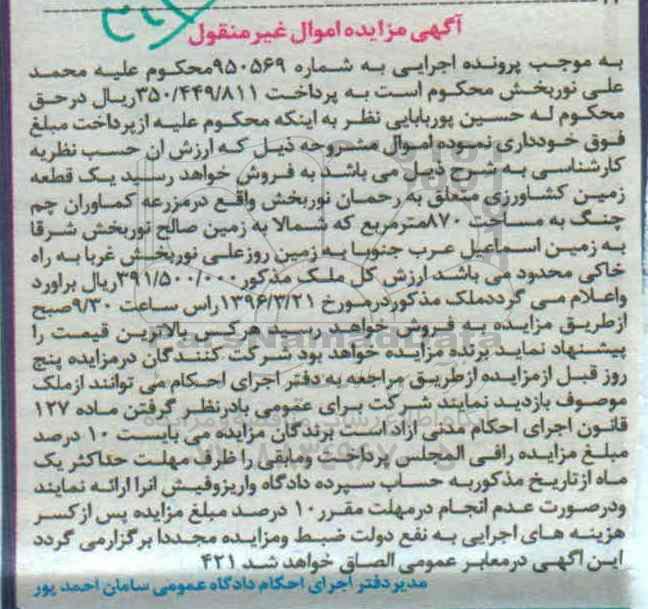 آگهی مزایده اموال غیر منقول
به موجب پرونده اجرایی به شماره ۹۵۰۵۶۹محکوم علیه محمد
علی نوربخش محکوم است به پرداخت ۳۵۰/۴۴۹/۸۱۱ریال درحق
محکوم له حسین پوربابایی نظر به اینکه محکوم علیه ازپرداخت مبلغ
فوق خودداری نموده اموال مشروحه ذیل که ارزش ان حسب نظریه
کارشناسی به شرح ذیل می باشد به فروش خواهد رسید یک قطعه
زمین کشاورزی متعلق به رحمان نوربخش واقع درمزرعه کماوران چم
چنگ به مساحت ۸۷۰مترمربع که شمالا به زمین صالح نوربخش شرقا
به زمین اسماعیل عرب جنوبا به زمین روزعلی نوربخش غربا به راه
خاکی محدود می باشد ارزش کل ملک مذکور۳۹۱/۵۰۰/۰۰۰ریال براورد
واعلام می گرددملک مذکوردرمورخ ۱۳۹۶/۳/۲۱راس ساعت ۹/۳۰صبح
ازطریق مزایده به فروش خواهد رسید هرکس بالاترین قیمت را
پیشنهاد نماید برنده مزایده خواهد بود شرکت کنندگان درمزایده پنج
روز قبل ازمزایده ازطریق مراجعه به دفتر اجرای احکام می توانند ازملک
موصوف بازدید نمایند شرکت برای عمومی بادرنظر گرفتن ماده ۱۲۷
قانون اجرای احکام مدنی ازاد است برندگان مزایده می بایست ۱۰ درصد
مبلغ مزایده رافی المجلس پرداخت ومابقی را ظرف مهلت حداکثر یک
ماه ازتاریخ مذکوربه حساب سپرده دادگاه واریزوفیش انرا ارائه نمایند
ودرصورت عدم انجام درمهلت مقرر۱۰ درصد مبلغ مزایده پس ازکسر
هزینه های اجرایی به نفع دولت ضبط ومزایده مجددا برگزارمی گردد
این اگهی درمعابر عمومی الصاق خواهد شد ۴۲۱
مدیردفتر اجرای احکام دادگاه عمومی سامان احمد پور
ParsNamadData